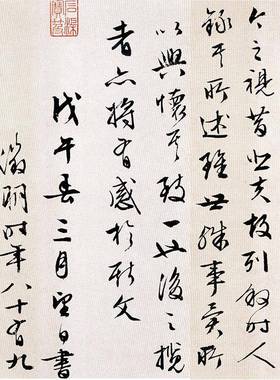 今之視昔悲夫故列敘時人
錄其所述雖世殊事異所
以興懷其致一也後之攬
者亦將有感於斯文
戊午春三月望日書
徵明時年八十有九
石渠寶笈